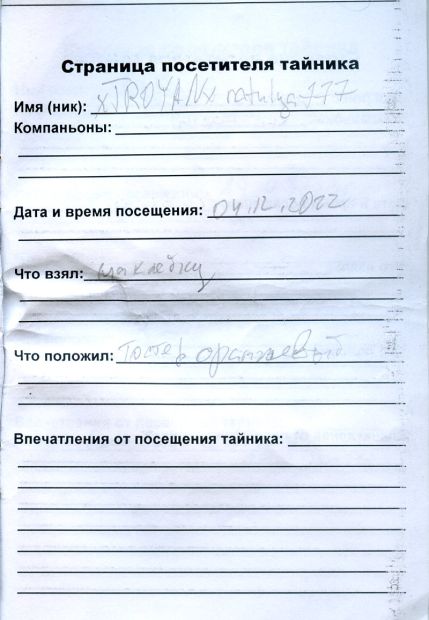 Страница посетителя тайника
Имя (ник): xTROYANx natulya777
Компаньоны:
Дата и время посещения: 04.12.2022
Что взял: наклейку
Что положил: Тостер оранжевый
Впечатления от посещения тайника: